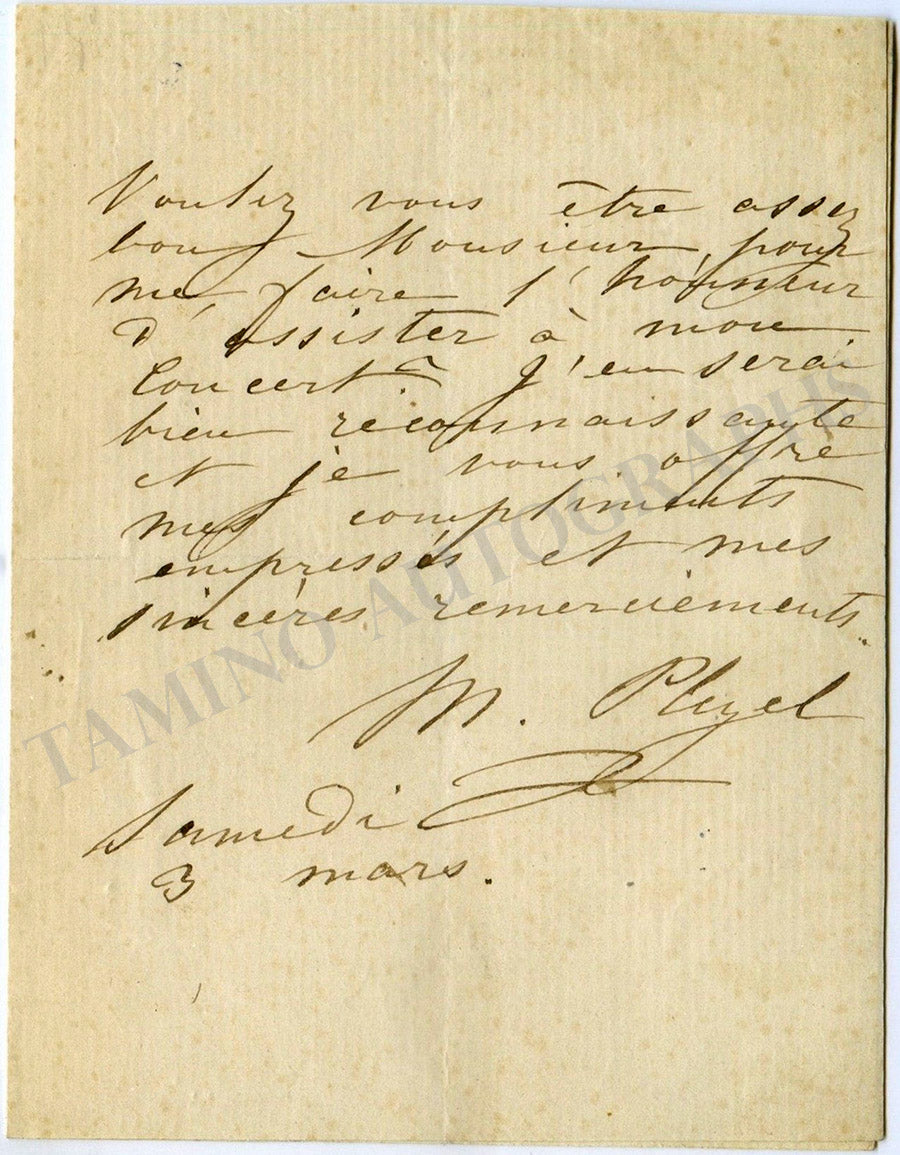 Voulez vous être assez
bon, Monsieur, pour
me faire l'honneur
d'assister à mon
Concert ? J'en serai
bien reconnaissante
et je vous offre
mes compliments
empressés et mes
sincères remerciements.
M. Pleyel
Samedi
3 mars.
TAMINO AUTOGRAPHS